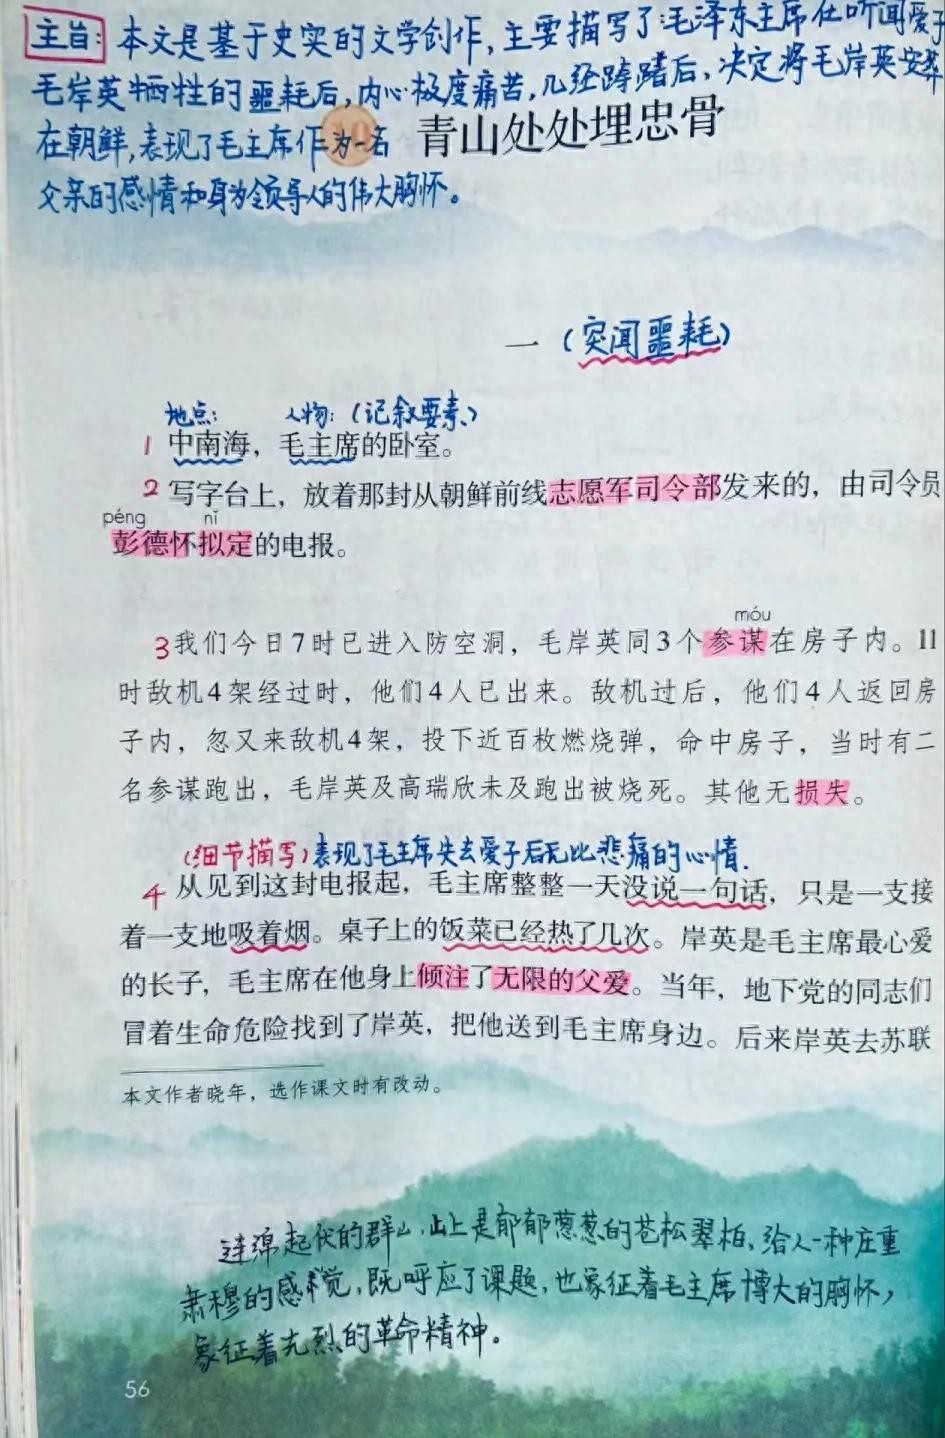 主旨: 本文是基于史实的文学创作,主要描写了毛泽东主席在听闻爱子
毛岸英牺牲的噩耗后,内心极度痛苦,几经踌躇后,决定将毛岸英安葬
在朝鲜,表现了毛主席作为一名
父亲的感情和身为领导人的伟大胸怀。
10 青山处处埋忠骨
一(突闻噩耗)
地点: 人物:(记叙要素)
1 中南海,毛主席的卧室。
2 写字台上,放着那封从朝鲜前线志愿军司令部发来的,由司令员
péng nǐ
彭德怀拟定的电报。
móu
3 我们今日7时已进入防空洞,毛岸英同3个参谋在房子内。11
时敌机4架经过时,他们4人已出来。敌机过后,他们4人返回房
子内,忽又来敌机4架,投下近百枚燃烧弹,命中房子,当时有二
名参谋跑出,毛岸英及高瑞欣未及跑出被烧死。其他无损失。
(细节描写)表现了毛主席失去爱子后无比悲痛的心情.
4 从见到这封电报起,毛主席整整一天没说一句话,只是一支接
着一支地吸着烟。桌子上的饭菜已经热了几次。岸英是毛主席最心爱
的长子,毛主席在他身上倾注了无限的父爱。当年,地下党的同志们
冒着生命危险找到了岸英,把他送到毛主席身边。后来岸英去苏联
本文作者晓年,选作课文时有改动。
连绵起伏的群山,山上是郁郁葱葱的苍松翠柏,给人一种庄重
肃穆的感觉,既呼应了课题,也象征着毛主席博大的胸怀,
象征着先烈的革命精神。
56